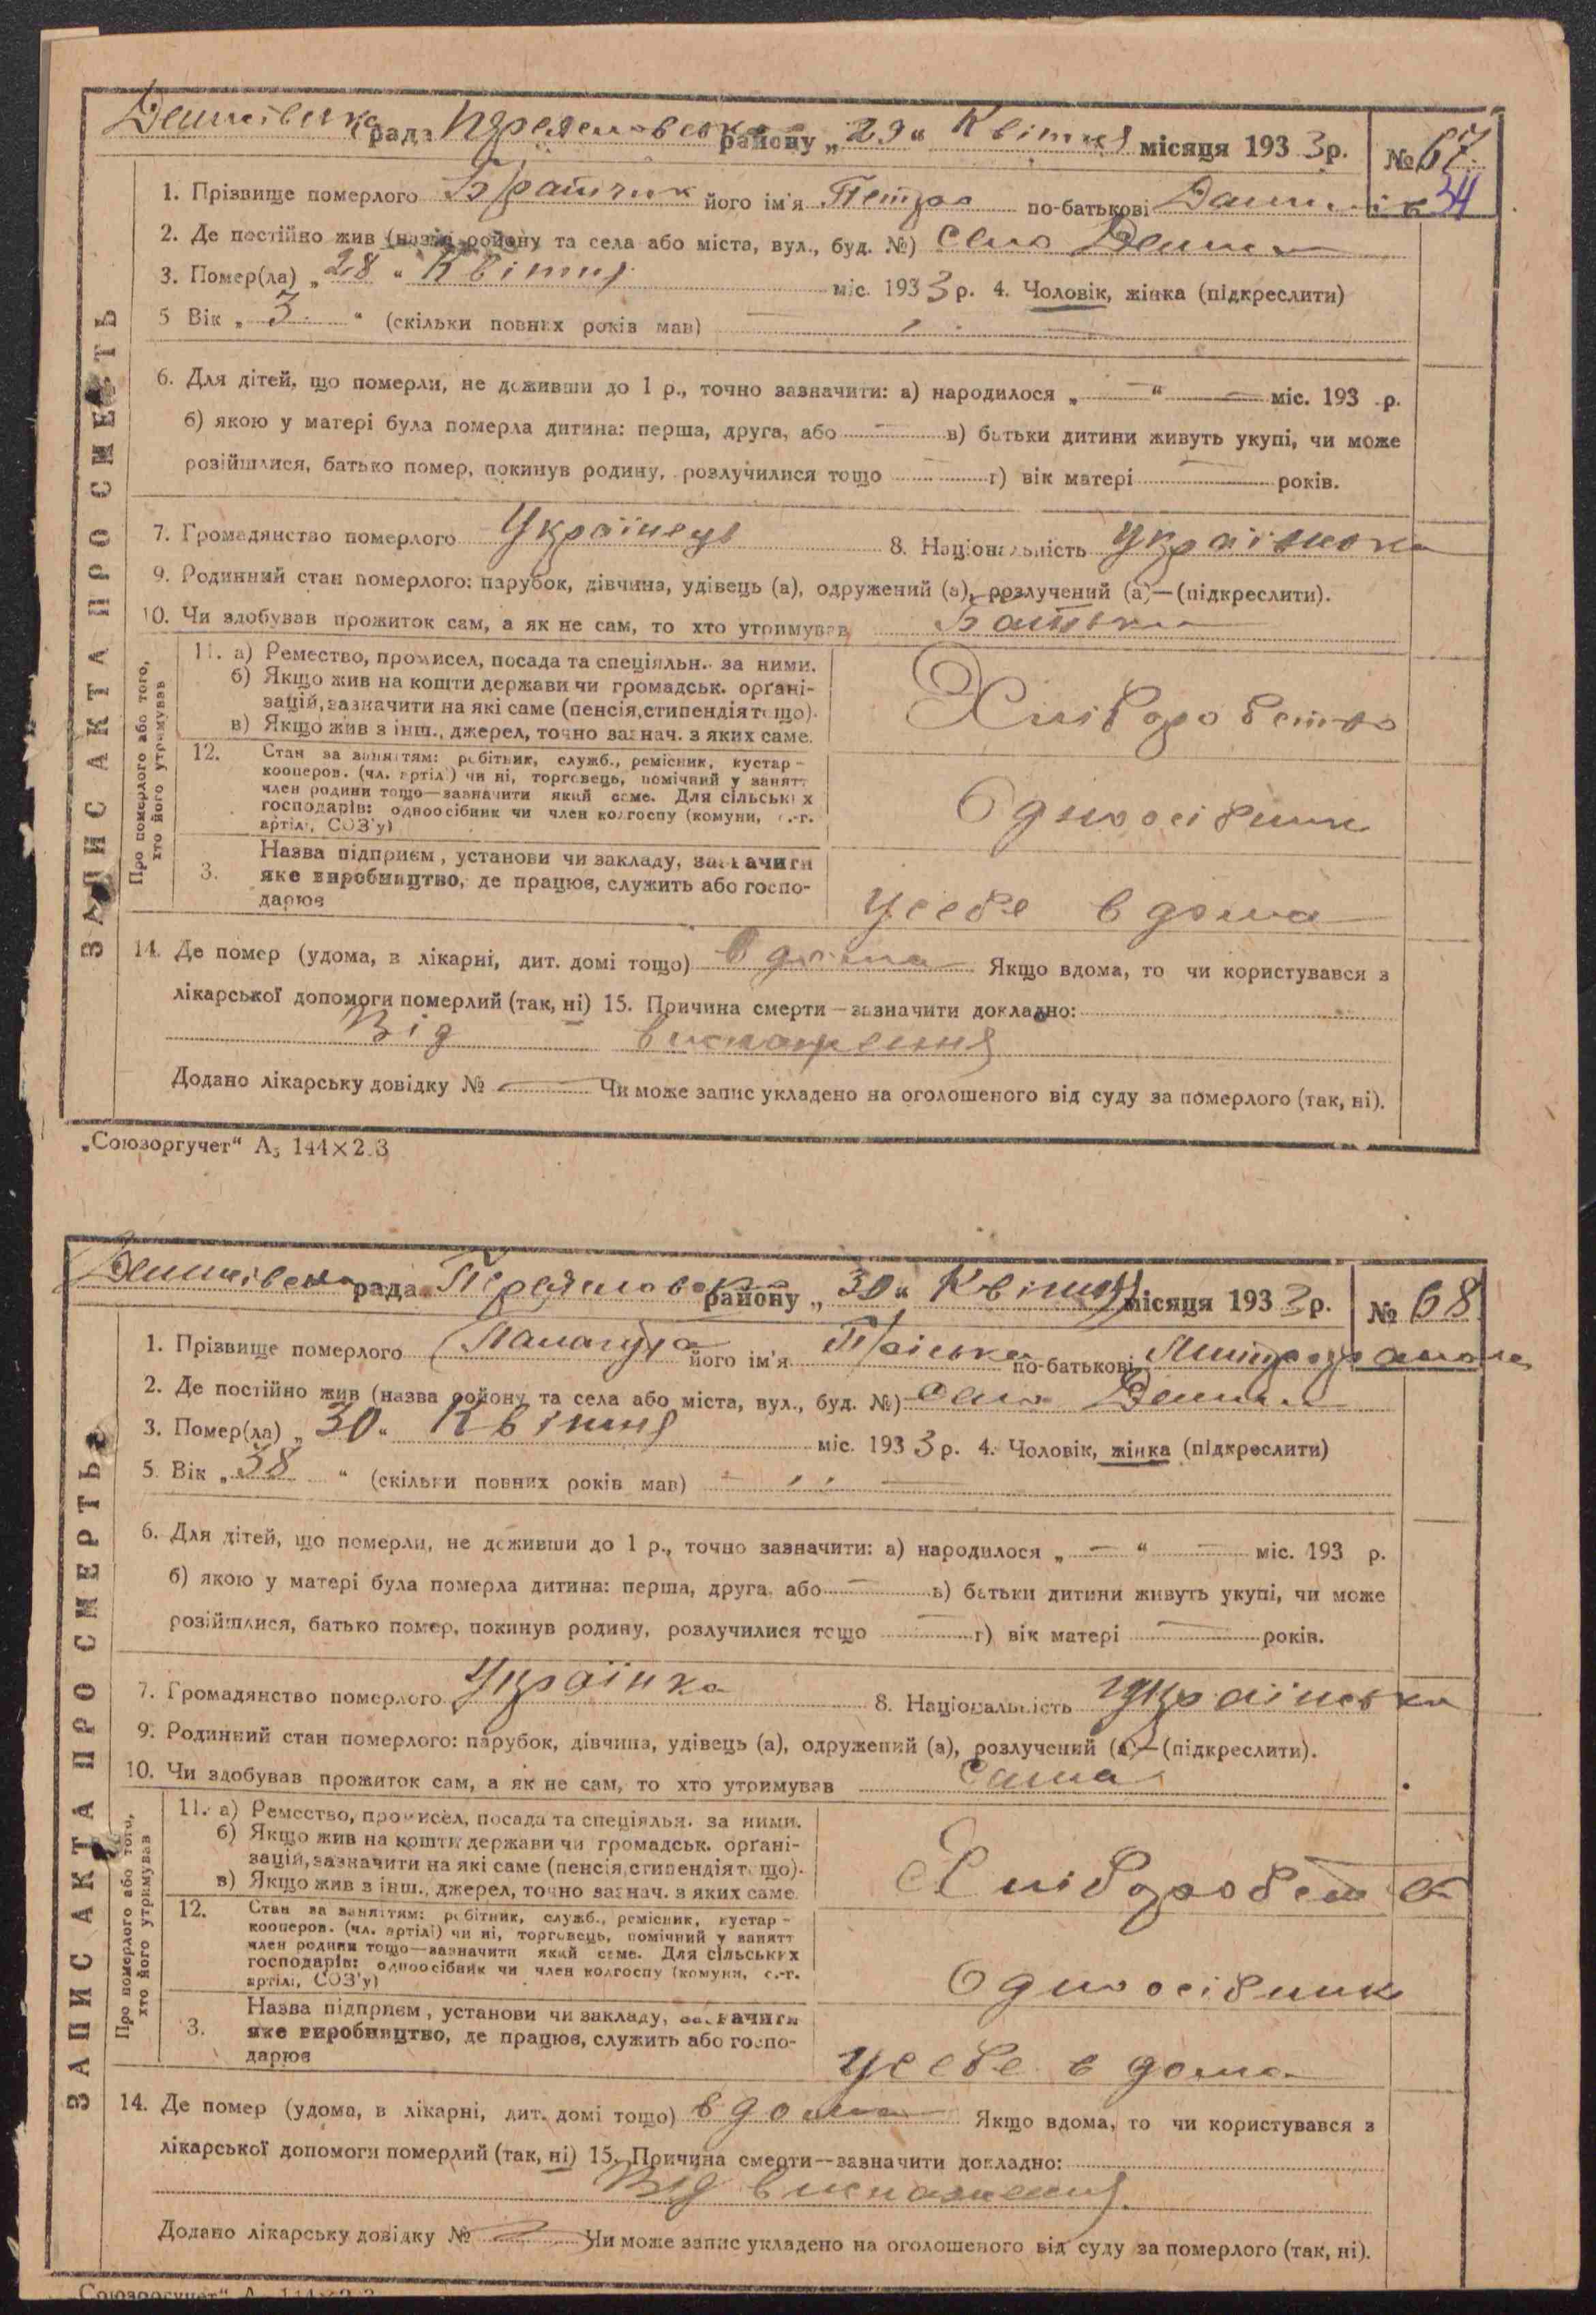 рада району „29“ Квітня місяця 1933 р. № 67
34
1. Прізвище померлого Братчик його ім'я Петро по-батькові
2. Де постійно жив (назва району та села або міста, вул., буд. №) село
3. Помер(ла) „28“ Квітня міс. 1933 р. 4. Чоловік, жінка (підкреслити)
5 Вік „3“ (скільки повних років мав)
6. Для дітей, що померли, не доживши до 1 р., точно зазначити: а) народилося „—“ — міс. 193 р.
б) якою у матері була померла дитина: перша, друга, або — в) батьки дитини живуть укупі, чи може
розійшлися, батько помер, покинув родину, розлучилися тощо г) вік матері — років.
7. Громадянство померлого Українець 8. Національність
9. Родинний стан померлого: парубок, дівчина, удівець (а), одружений (а), розлучений (а)—(підкреслити).
10. Чи здобував прожиток сам, а як не сам, то хто утримував Батько
ЗАПИС АКТА ПРО СМЕРТЬ
Про померлого або того,
хто його утримував
11. а) Ремество, промисел, посада та спеціяльн. за ними.
б) Якщо жив на кошти держави чи громадськ. органі-
зацій, зазначити на які саме (пенсія, стипендія тощо).
в) Якщо жив з інш., джерел, точно зазнач. з яких саме.
Хліборобство
12. Стан за заняттям: робітник, служб., ремісник, кустар-
кооперов. (чл. артілі) чи ні, торговець, помічний у занятт
член родини тощо—зазначити який саме. Для сільських
господарів: одноосібник чи член колгоспу (комуни, с.-г.
артілі, СОЗ'у)
Одноосібник
3. Назва підприєм, установи чи закладу, зазначити
яке виробництво, де працює, служить або госпо-
дарює
у себе в дома
14. Де помер (удома, в лікарні, дит. домі тощо) в дома Якщо вдома, то чи користувався з
лікарської допомоги померлий (так, ні) 15. Причина смерти—зазначити докладно:
Від виснаження
Додано лікарську довідку № — Чи може запис укладено на оголошеного від суду за померлого (так, ні).
„Союзоргучет“ А5 144×2 3
рада району „30“ Квітня місяця 1933 р. № 68
1. Прізвище померлого його ім'я по-батькові
2. Де постійно жив (назва району та села або міста, вул., буд. №) село
3. Помер(ла) „30“ Квітня міс. 1933 р. 4. Чоловік, жінка (підкреслити)
5. Вік „38“ (скільки повних років мав)
6. Для дітей, що померли, не доживши до 1 р., точно зазначити: а) народилося „—“ — міс. 193 р.
б) якою у матері була померла дитина: перша, друга, або — в) батьки дитини живуть укупі, чи може
розійшлися, батько помер, покинув родину, розлучилися тощо — г) вік матері — років.
7. Громадянство померлого Українка 8. Національність Українська
9. Родинний стан померлого: парубок, дівчина, удівець (а), одружений (а), розлучений (а)—(підкреслити).
10. Чи здобував прожиток сам, а як не сам, то хто утримував Сама
ЗАПИС АКТА ПРО СМЕРТЬ
Про померлого або того,
хто його утримував
11. а) Ремество, промисел, посада та спеціяльн. за ними.
б) Якщо жив на кошти держави чи громадськ. органі-
зацій, зазначити на які саме (пенсія, стипендія тощо).
в) Якщо жив з інш., джерел, точно зазнач. з яких саме.
12. Стан за заняттям: робітник, служб., ремісник, кустар-
кооперов. (чл. артілі) чи ні, торговець, помічний у занятт
член родини тощо—зазначити який саме. Для сільських
господарів: одноосібник чи член колгоспу (комуни, с.-г.
артілі, СОЗ'у)
Одноосібник
3. Назва підприєм, установи чи закладу, зазначити
яке виробництво, де працює, служить або госпо-
дарює
у себе в дома
14. Де помер (удома, в лікарні, дит. домі тощо) в дома Якщо вдома, то чи користувався з
лікарської допомоги померлий (так, ні) 15. Причина смерти—зазначити докладно:
Від виснаження
Додано лікарську довідку № — Чи може запис укладено на оголошеного від суду за померлого (так, ні).
„Союзоргучет“ А 144×2 3